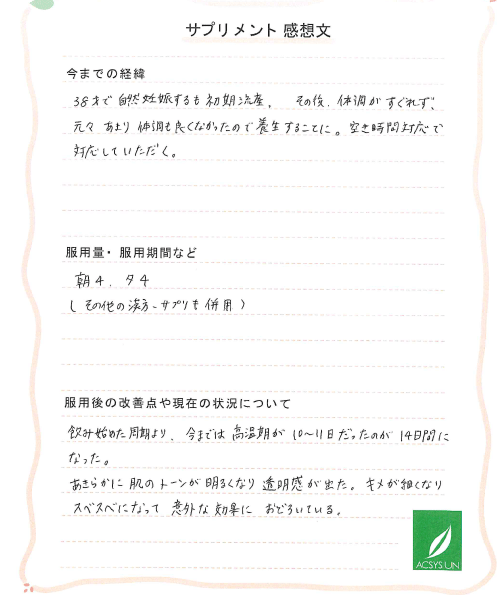 サプリメント 感想文
今までの経緯
38才で自然妊娠するも初期流産。 その後、体調がすぐれず、
元々あまり体調も良くなかったので養生することに。空き時間対応で
対応していただく。
服用量・服用期間など
朝4、夕4
(その他の漢方、サプリも併用)
服用後の改善点や現在の状況について
飲み始めた周期より、今までは高温期が10〜11日だったのが14日間に
なった。
あきらかに肌のトーンが明るくなり透明感が出た。キメが細くなり
スベスベになって意外な効果におどろいている。
ACSYS UN